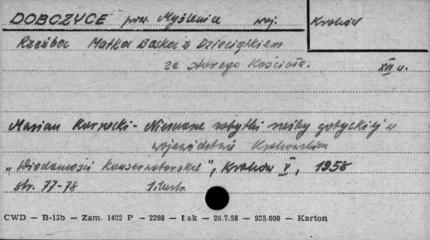 DOBCZYCE pow. Myślenice woj. Kraków
Rzeźba Matka Boska z Dzieciątkiem
ze starego Kościoła. XV w.
Marian Kornecki - Nieznane zabytki rzeźby gotyckiej w
województwie Krakowskim
„Wiadomości Konserwatorskie", Kraków V, 1958
str. 77-78 1 ilustr.
CWD — B-15b — Zam. 1402 P — 2298 — Łak — 26.7.58 — 925.000 — Karton